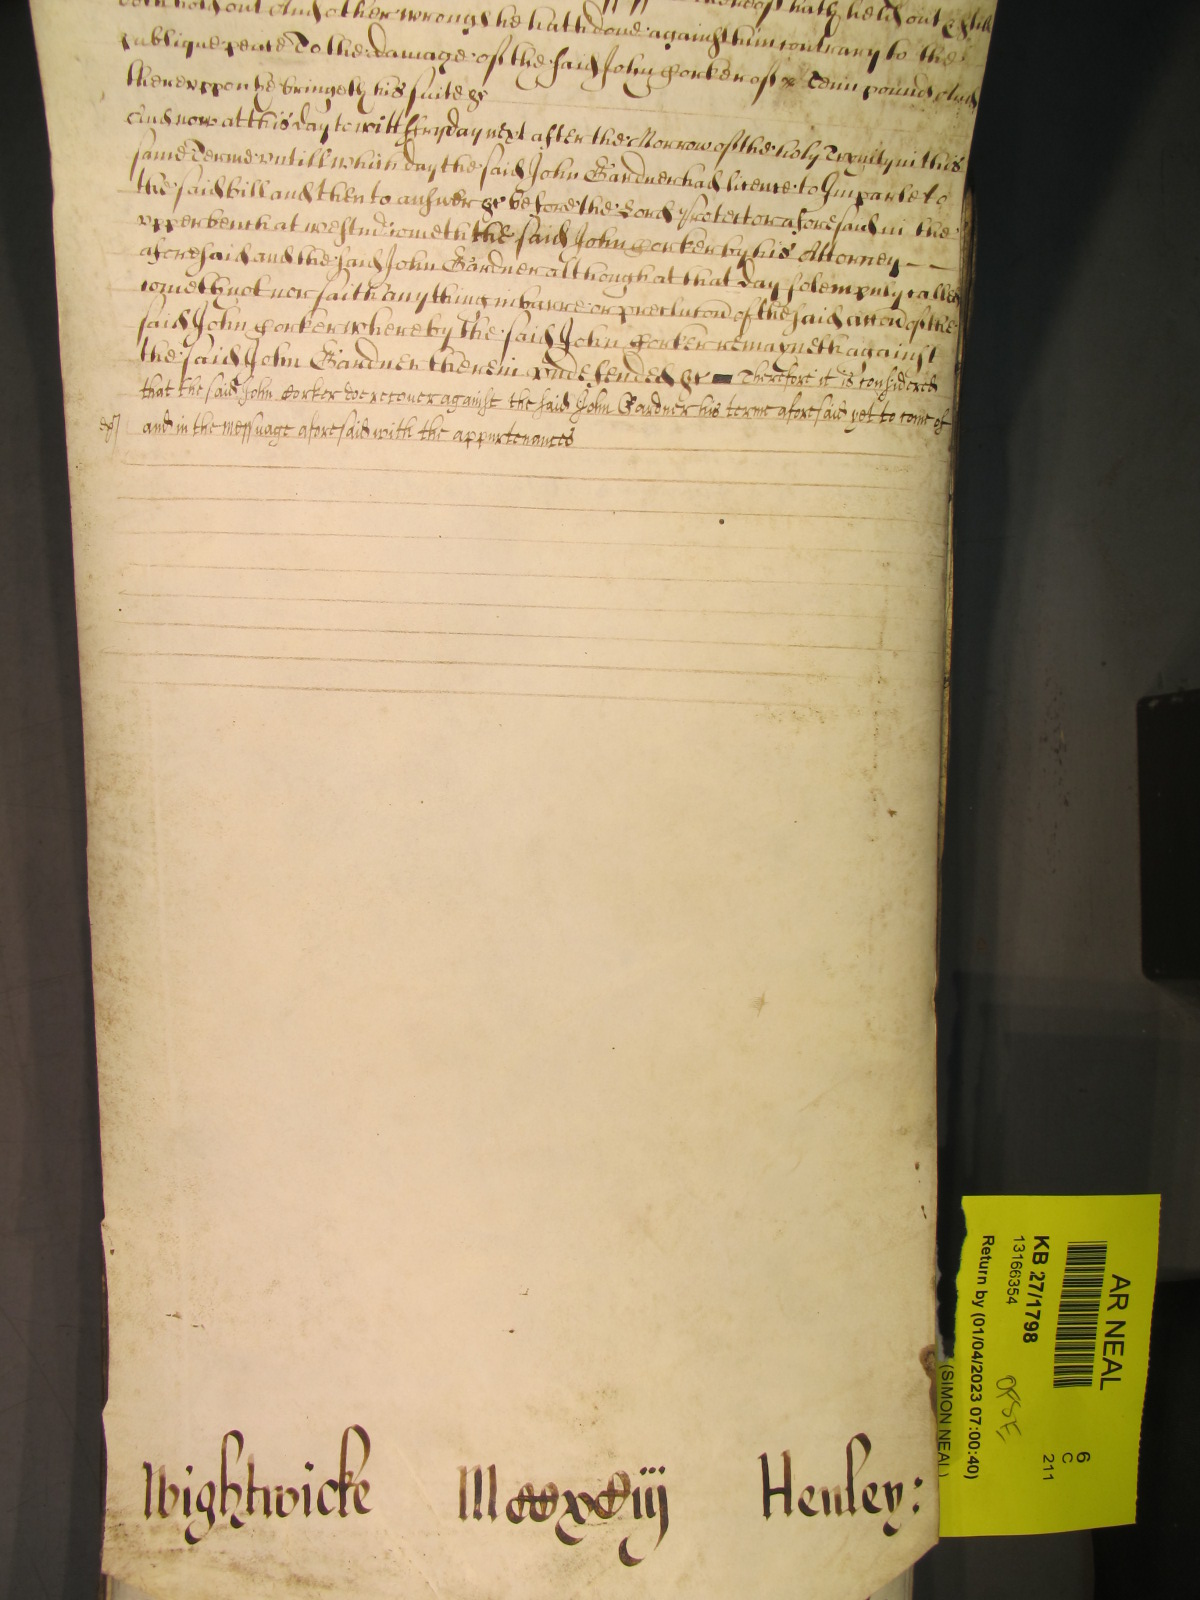 hold out And other wrongs he hath done against him contrary to the
publique peace To the damage of the said John Corker of x Tenn pounds And
thereuppon he bringeth his suite &c
And now at this day to witt ffryday next after the Morrow of the holy Trynity in this
same Terme untill which day the said John Gardner had licence to Imparle to
the said bill and then to answer &c before the Lord Protector aforesaid in the
upper bench at westmr cometh the said John Corker by his Attorney — —
aforesaid and the said John Gardner although at that day solempnly called
cometh not nor saith anything in barre or preclucon of the said accon of the
said John Corker whereby the said John Corker remayneth against
the said John Gardner therein undefended &c — Therefore it is considered
that the said John Corker doe recouer against the said John Gardner his terme aforesaid yet to come of
and in the messuage aforesaid with the appurtenances
Wightwicke
Henley:
AR NEAL
KB 27/1798
13166354
Return by (01/04/2023 07:00:40)
(SIMON NEAL)
6
C
211